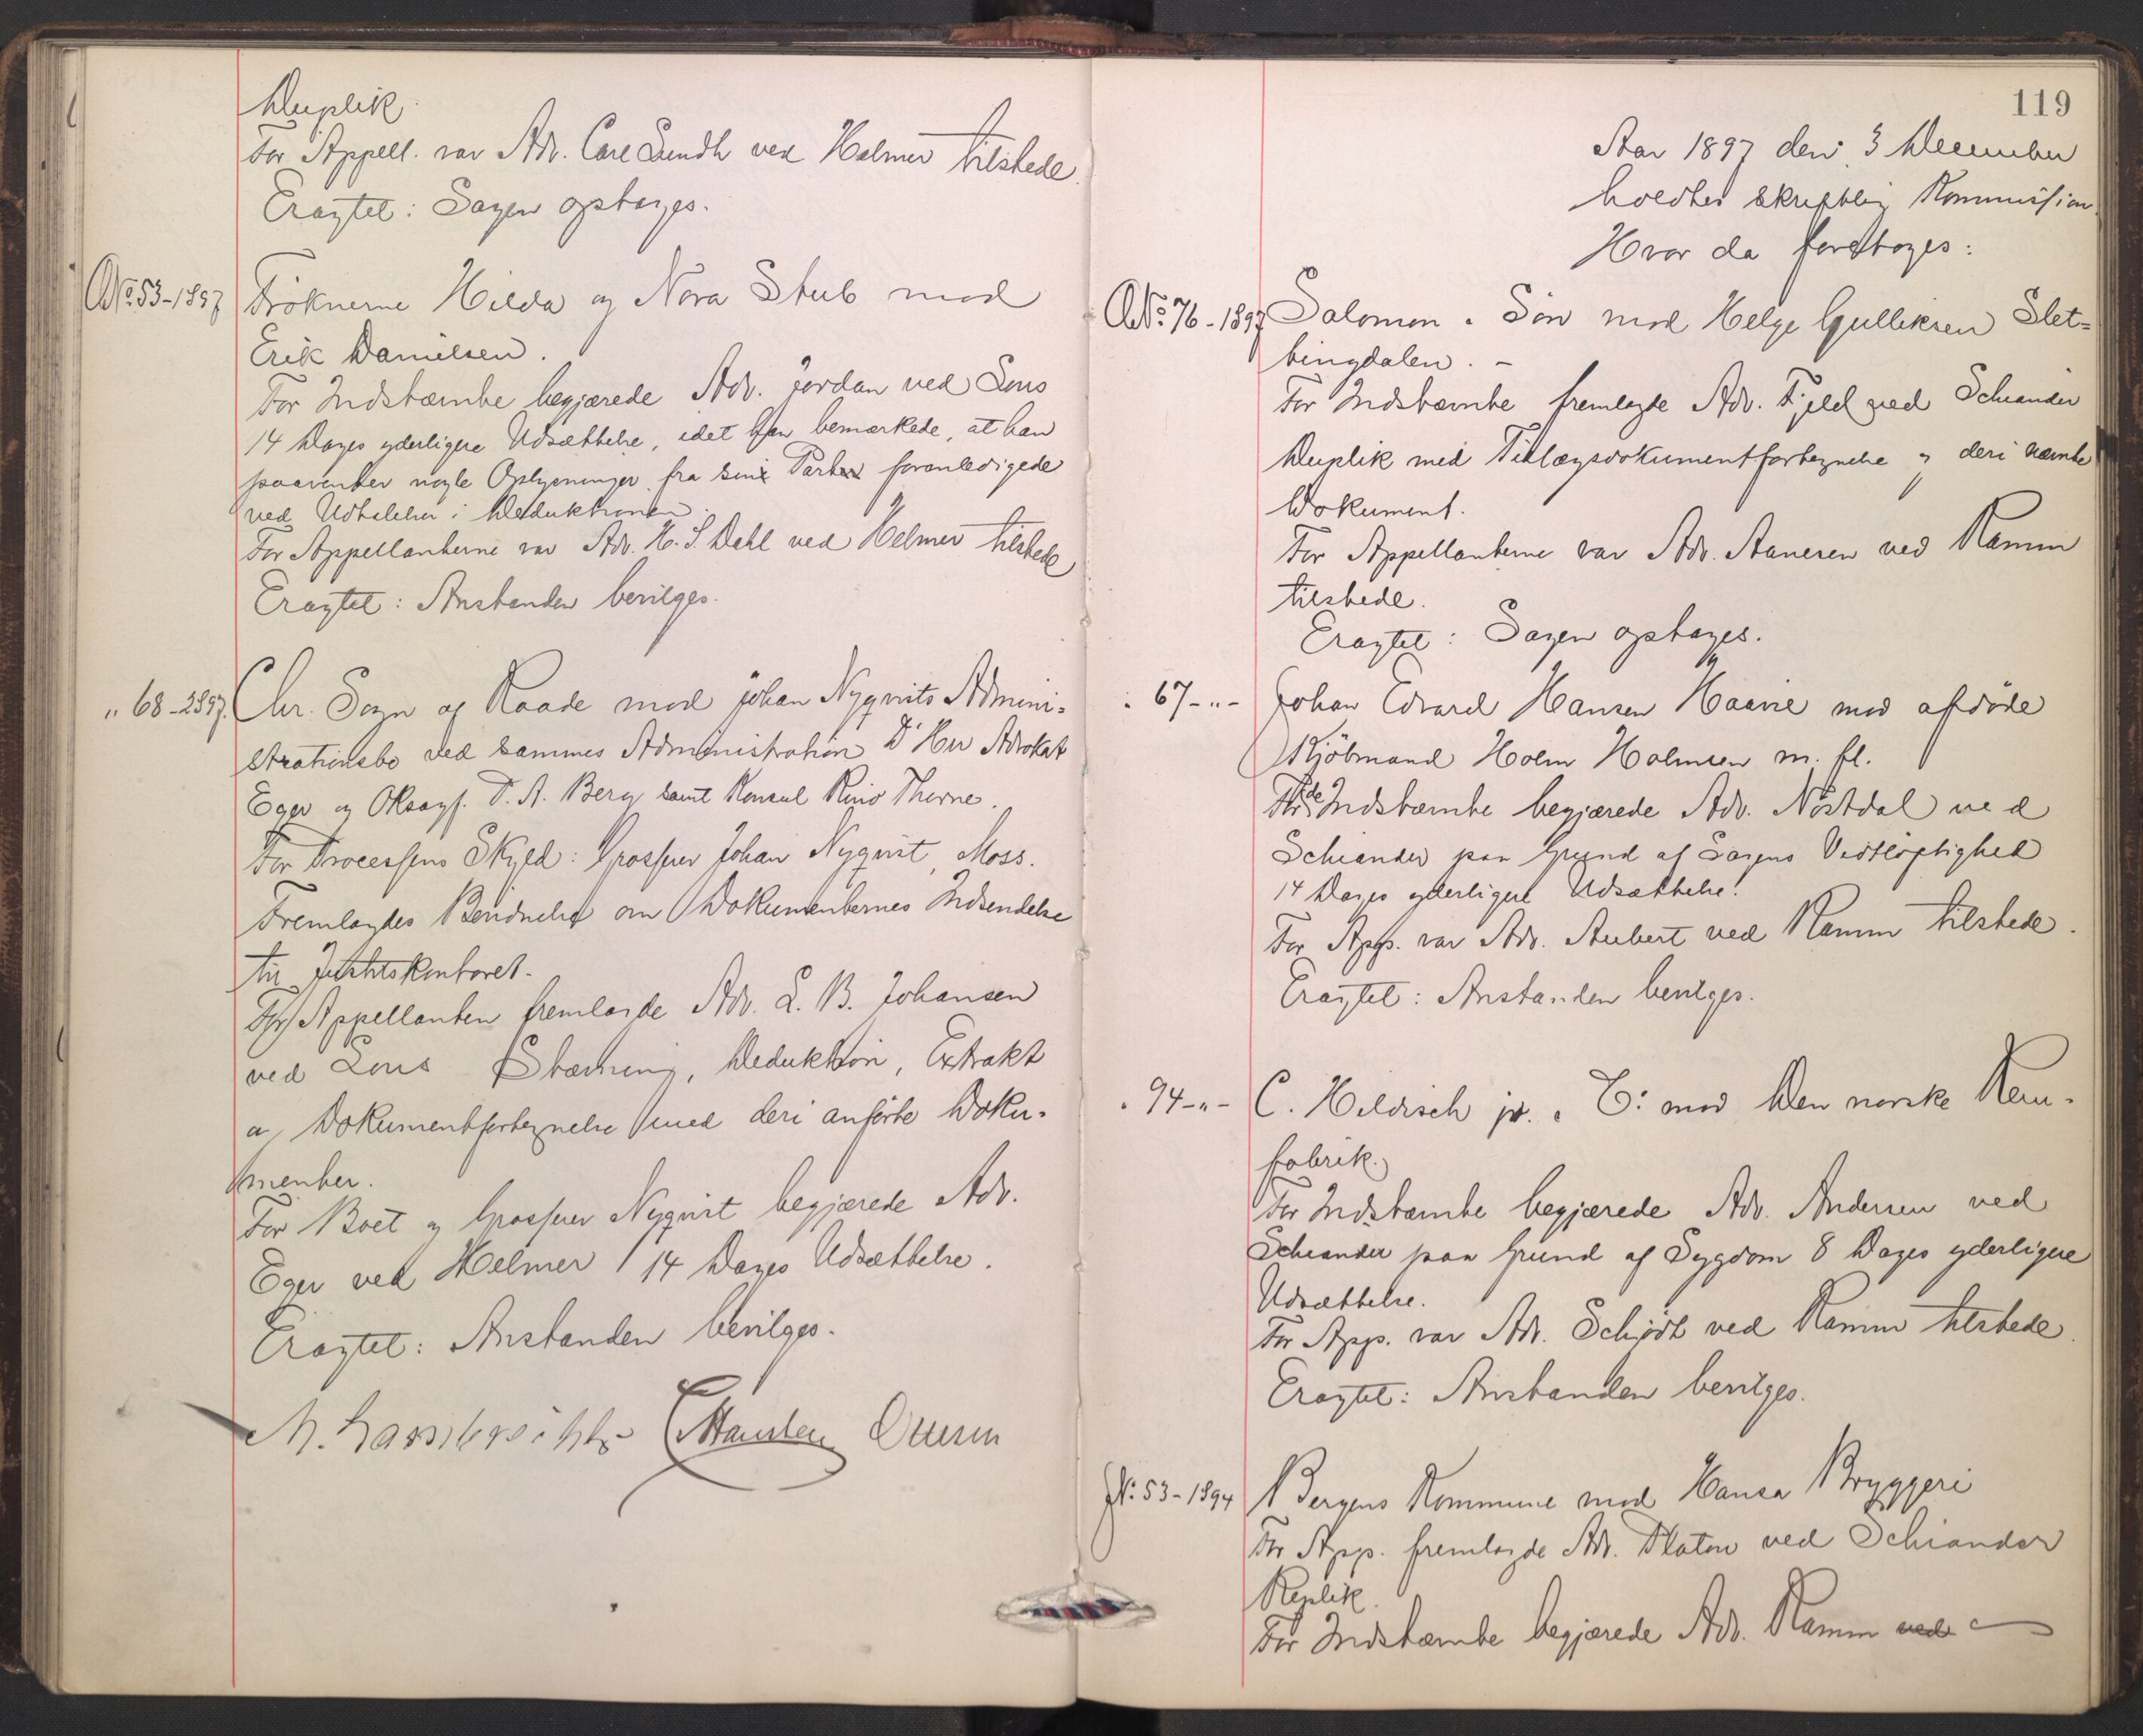 Duplik.
For Appell. var Adv. Carl Lundh ved Helmer tilstede.
Eragtet: Sagen optages.
No. 53-1897 Frøknerne Hilda og Nora Stub mod
Erik Danielsen.
For Indstævnte begjærede Adv. Jordan ved Lous
14 Dages yderligere Udsættelse, idet han bemærkede, at han
paaventer nogle Oplysninger fra sin Part foranledigede
ved Udtalelser i Deduktionen.
For Appellanterne var Adv. H. S. Dahl ved Helmer tilstede
Eragtet: Anstanden bevilges.
" 68-1897. Chr. Sogn og Raade mod Johan Nyqvists Admini-
strationsbo ved sammes Administration Dhrr Advokat
Eger og Oksagf. T. A. Berg samt Konsul Rino Thorne.
For Processens Skyld: Grosserer Johan Nyqvist, Moss.
Fremlagdes Bevidnelse om Dokumenternes Indsendelse
til Justitskontoret.
For Appellanten fremlagde Adv. L. B. Johansen
ved Lous Stævning, Deduktion, Extrakt
og Dokumentfortegnelse med deri anførte Doku-
menter.
For Boet og Grosserer Nyqvist begjærede Adv.
Eger ved Helmer 14 Dages Udsættelse.
Eragtet: Anstanden bevilges.
M. Lambrechts Hansteen Ottesen
119
Aar 1897 den 3 December
holdtes skriftlig Kommission
Hvor da foretoges:
No. 76-1897 Salomon & Søn mod Helge Gulliksen Slet-
tingdalen. -
For Indstævnte fremlagde Adv. Fjeld ved Schiander
Duplik med Tillægsdokumentfortegnelse og deri nævnte
Dokument.
For Appellanterne var Adv. Aanesen ved Ramm
tilstede.
Eragtet: Sagen optages.
" 67-"- Johan Edvard Hansen Haavie mod afdøde
Kjøbmand Holm Holmsen m. fl.
For de Indstævnte begjærede Adv. Nøstdal ved
Schiander paa Grund af Sagens Vidtløftighed
14 Dages yderligere Udsættelse.
For App. var Adv. Aubert ved Ramm tilstede.
Eragtet: Anstanden bevilges.
" 94-"- C. Hildisch jr. & C: mod Den norske Rem-
fabrik.
For Indstævnte begjærede Adv. Andersen ved
Schiander paa Grund af Sygdom 8 Dages yderligere
Udsættelse.
For App. var Adv. Schjødt ved Ramm tilstede.
Eragtet: Anstanden bevilges.
No. 53-1894 Bergens Kommune mod Hansa Bryggeri
For App. fremlagde Adv. Platou ved Schiander
Replik.
For Indstævnte begjærede Adv. Ramm ved